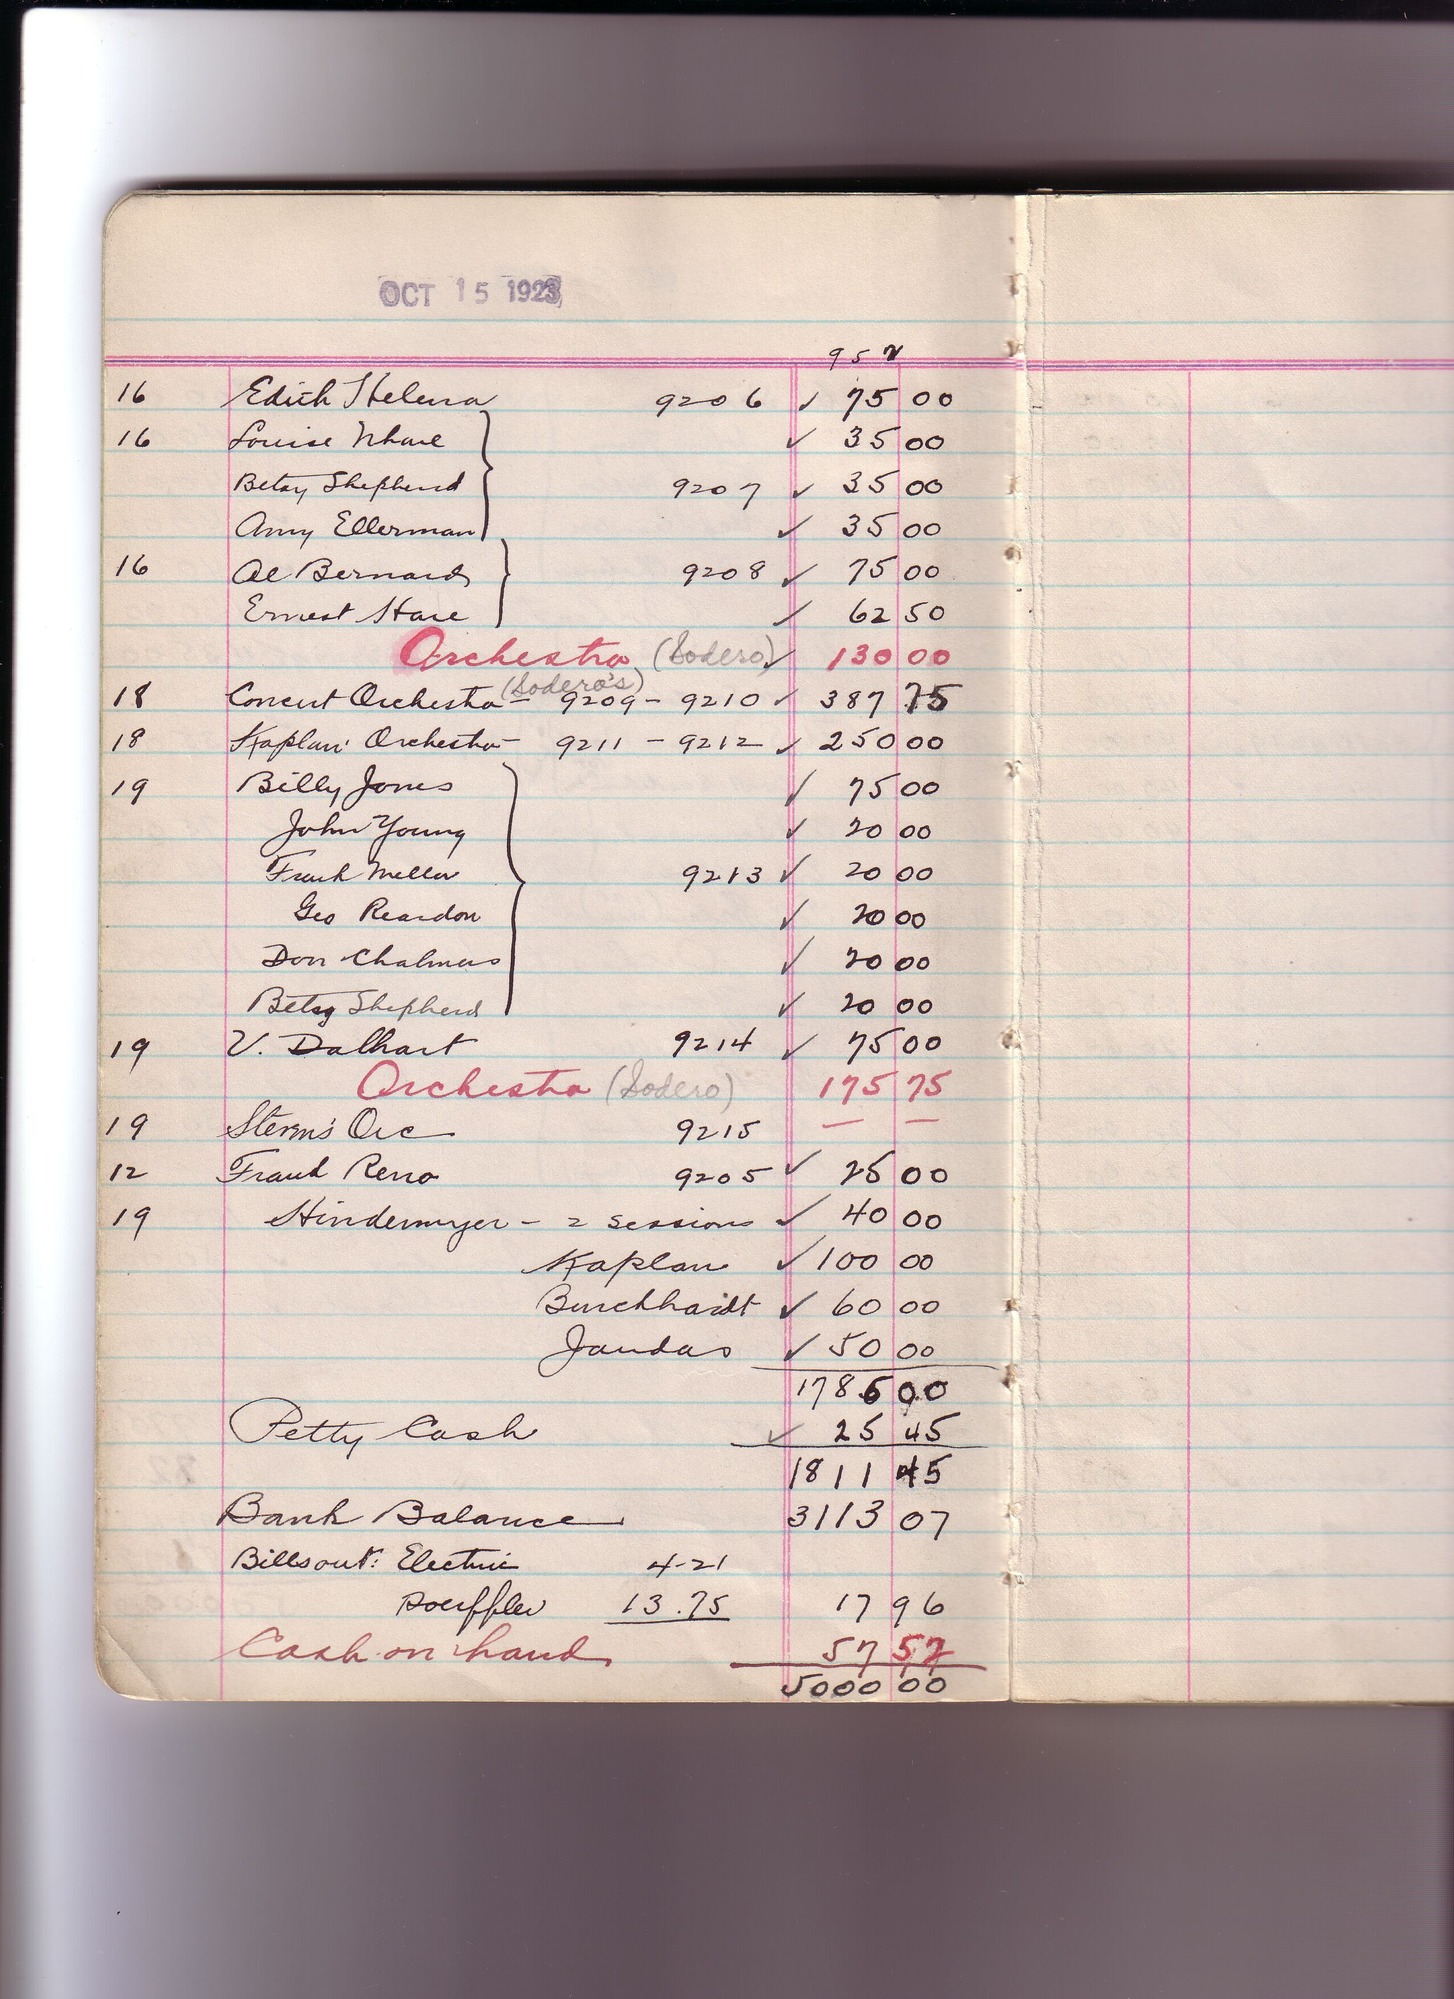 OCT 15 1923
952
16 Edith Helena 9206 ✓ 75 00
16 Louise ✓ 35 00
Betsy Shepherd 9207 ✓ 35 00
Amy Ellerman ✓ 35 00
16 Al Bernard 9208 ✓ 75 00
Ernest Hare ✓ 62 50
Orchestra (Sodero) ✓ 130 00
(Sodero's)
18 Concert Orchestra - 9209 - 9210 ✓ 387 75
18 Kaplan' Orchestra - 9211 - 9212 ✓ 250 00
19 Billy Jones ✓ 75 00
John Young ✓ 20 00
Frank Mellor 9213 ✓ 20 00
Geo Reardon ✓ 20 00
Don Chalmers ✓ 20 00
Betsy Shepherd ✓ 20 00
19 V. Dalhart 9214 ✓ 75 00
Orchestra (Sodero) 175 75
19 Stern's Orc 9215 — —
12 Frank Reno 9205 ✓ 25 00
19 Hindermyer - 2 sessions ✓ 40 00
Kaplan ✓ 100 00
Burckhardt ✓ 60 00
Jaudas ✓ 50 00
1786 00
Petty Cash ✓ 25 45
1811 45
Bank Balance 3113 07
Bills out: Electric 4-21
13.75 17 96
Cash on hand 57 52
5000 00